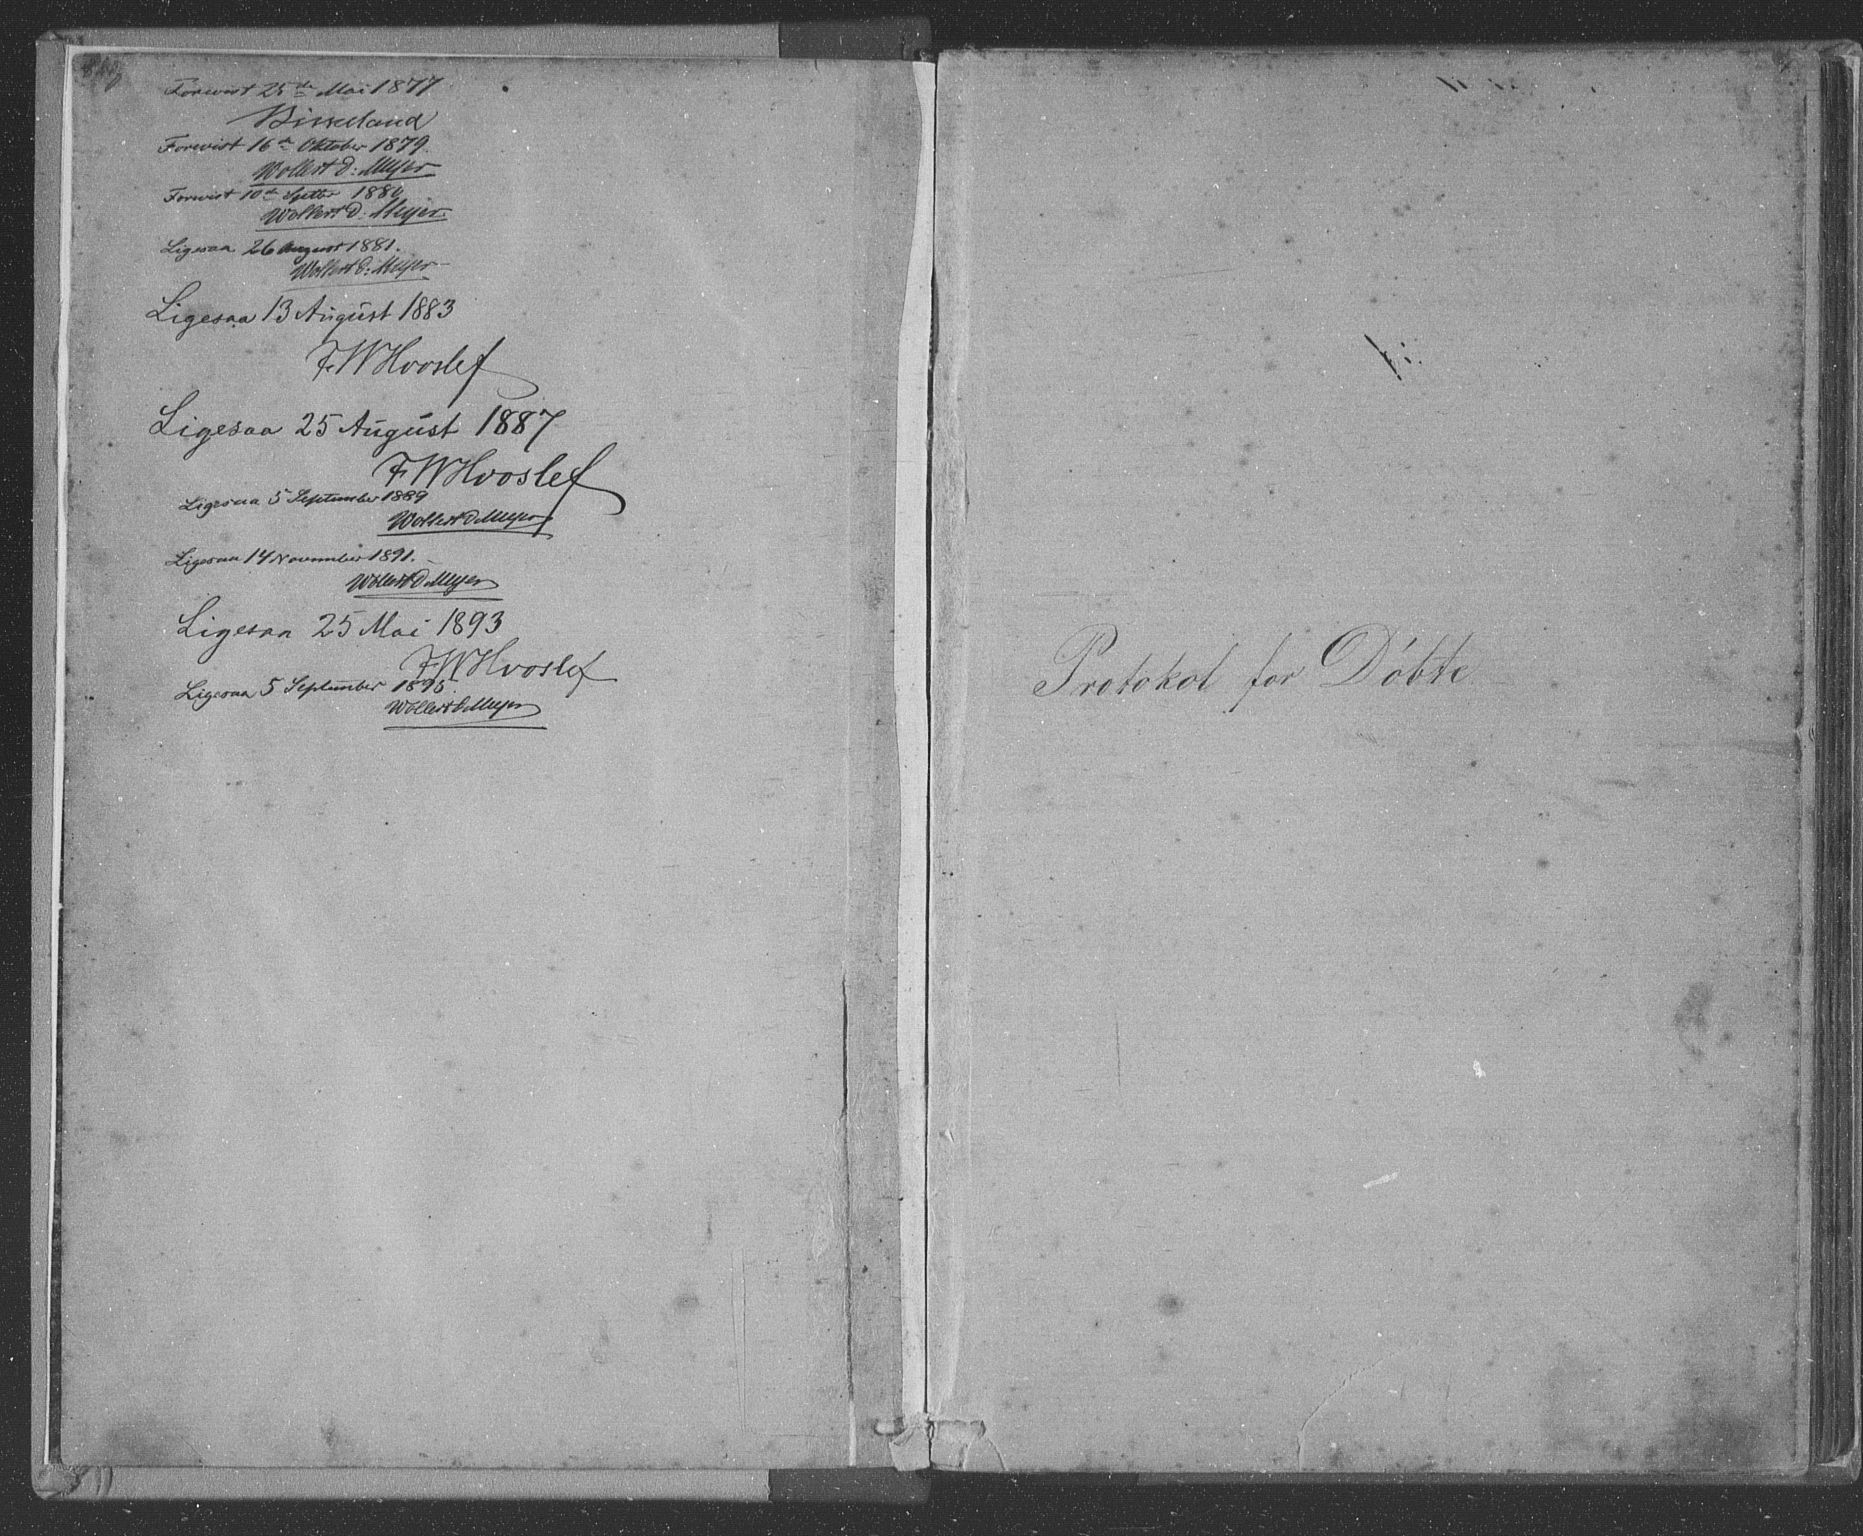 Forevist 25de Mai 1877
Forevist 16de Oktober 1879.
Wollert D: Meyer
Forevist 10de Septbr 1880
Wollert D: Meyer.
Ligesaa 26 August 1881.
Wollert D: Meyer
Ligesaa 13 August 1883
F. W Hvoslef
Ligesaa 25 August 1887
F W Hvoslef
Ligesaa 5 September 1889
Wollert D Meyer
Ligesaa 14 November 1891.
Wollert D Meyer
Ligesaa 25 Mai 1893
F W Hvoslef
Ligesaa 5 September 1895.
Wollert D Meyer
Protokol for Döbte